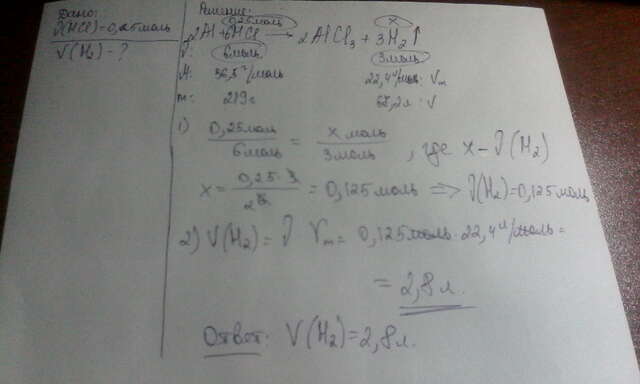 Дано:
ν(HCl)=0,25моль
V(H₂)-?
Решение:
0,25моль x
2Al+6HCl → 2AlCl₃ + 3H₂↑
ν: 6моль 3моль
M: 36,5г/моль 22,4л/моль: Vm
m: 219г 67,2л: V
1) 0,25моль/6моль = x моль/3моль, где x - ν(H₂)
x = 0,25·3/6 2 = 0,125моль ⇒ ν(H₂)=0,125моль
2) V(H₂) = ν Vm = 0,125моль·22,4л/моль=
= 2,8л.
Ответ: V(H₂)=2,8л.